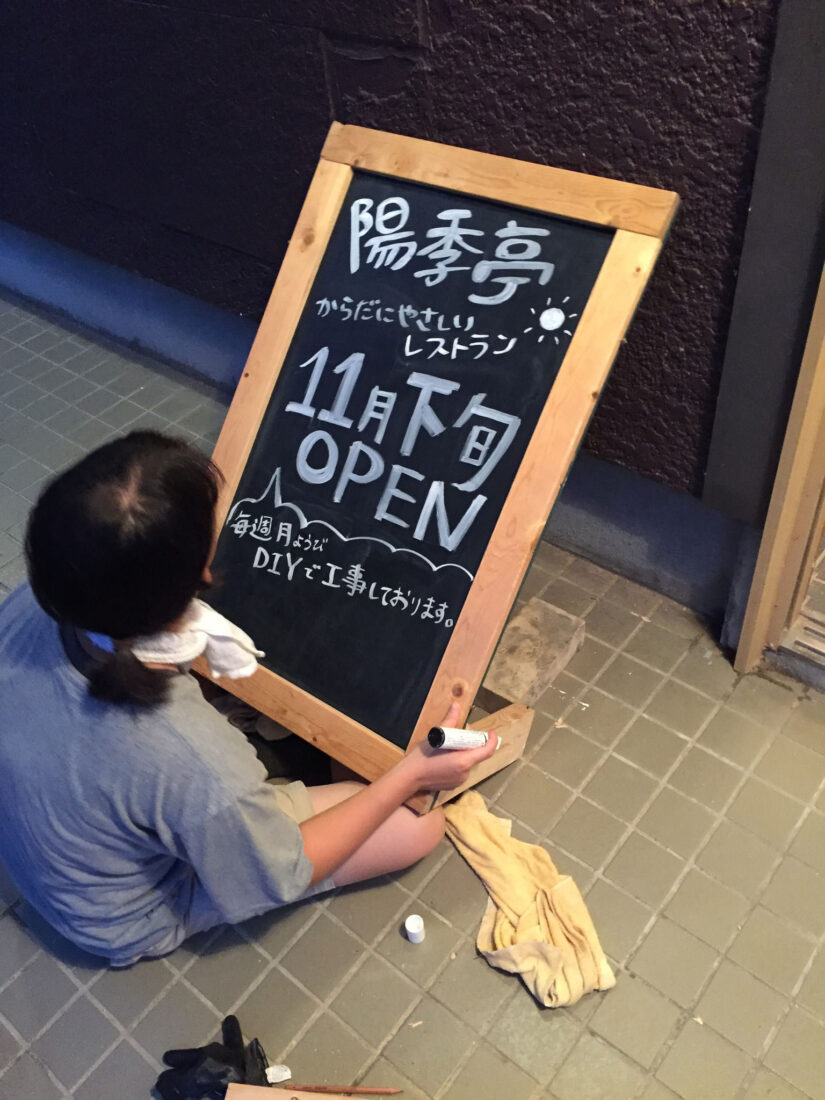 陽季亭
からだにやさしい
レストラン
11月下旬
OPEN
毎週月ようび
DIYで工事しております。